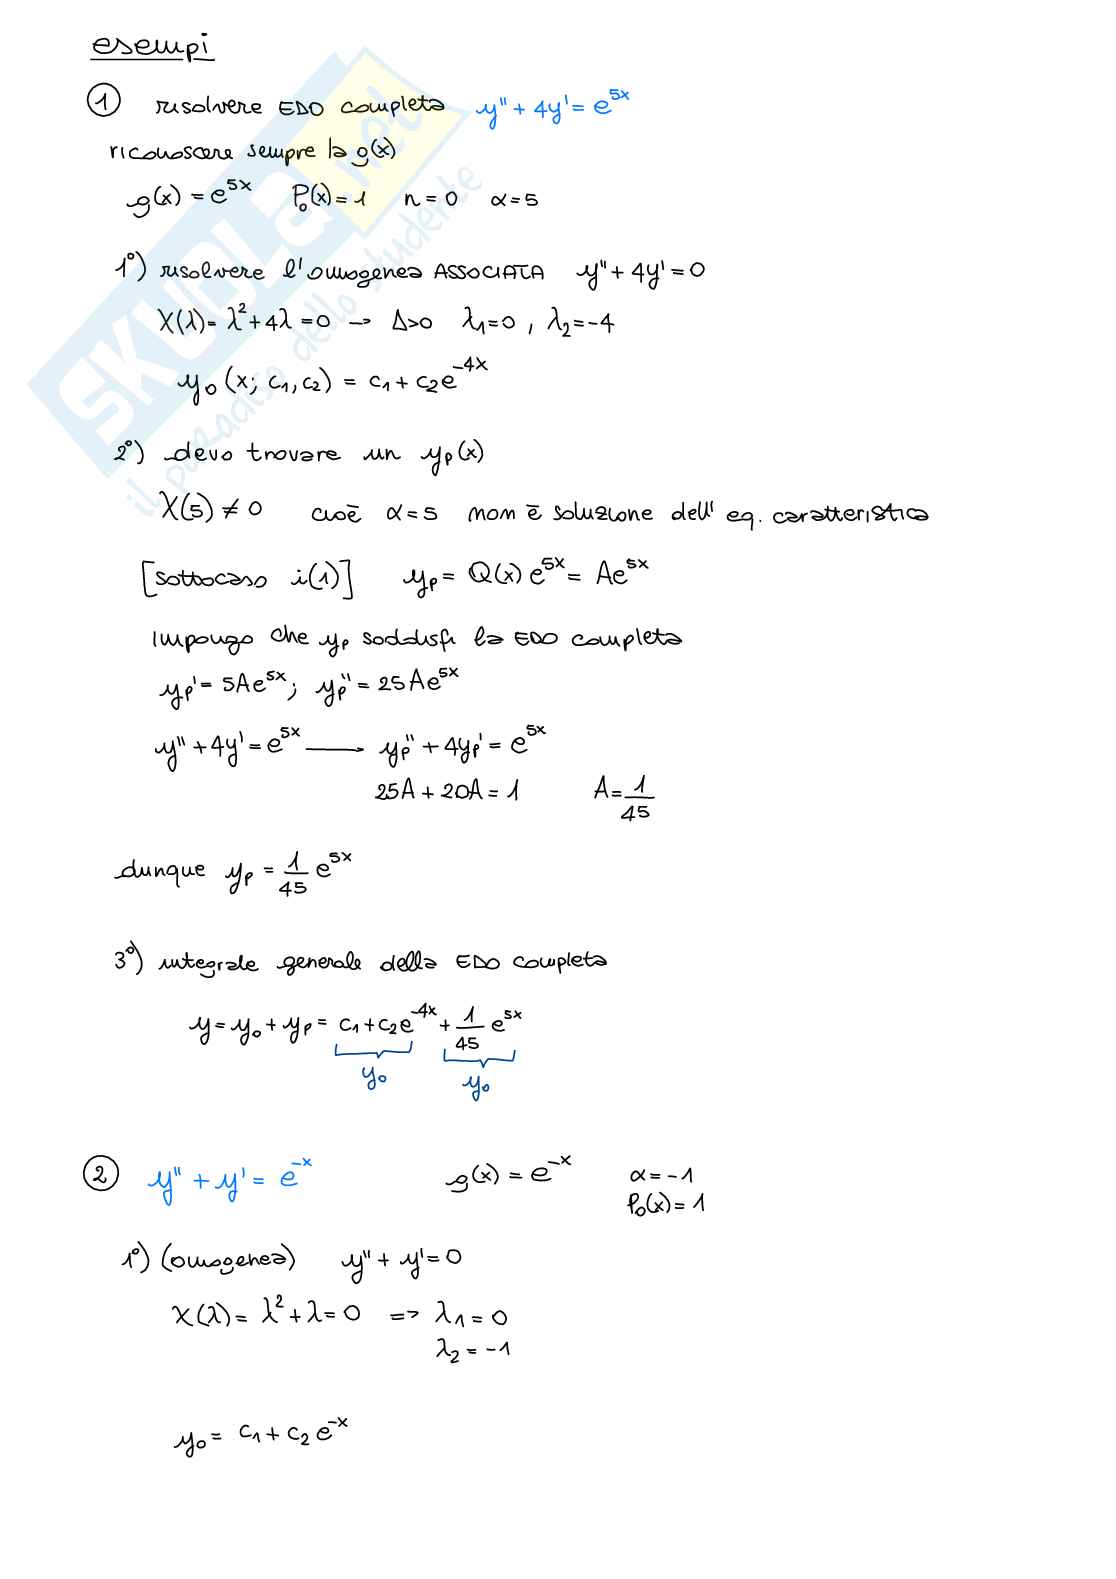 esempi
① risolvere EDO completa y'' + 4y' = e^{5x}
riconoscere sempre la g(x)
g(x) = e^{5x} P₀(x) = 1 n = 0 α = 5
1°) risolvere l'omogenea ASSOCIATA y'' + 4y' = 0
χ(λ) = λ² + 4λ = 0 → Δ>0 λ₁=0 , λ₂=-4
y₀(x; c₁, c₂) = c₁ + c₂e^{-4x}
2°) devo trovare un yₚ(x)
χ(5) ≠ 0 cioè α = 5 non è soluzione dell'eq. caratteristica
[sottocaso i(1)] yₚ = Q(x) e^{5x} = Ae^{5x}
Impongo che yₚ soddisfi la EDO completa
yₚ' = 5Ae^{5x}; yₚ'' = 25Ae^{5x}
y'' + 4y' = e^{5x} —— yₚ'' + 4yₚ' = e^{5x}
25A + 20A = 1 A = 1/45
dunque yₚ = 1/45 e^{5x}
3°) integrale generale della EDO completa
y = y₀ + yₚ = c₁ + c₂e^{-4x} + 1/45 e^{5x}
y₀ y₀
② y'' + y' = e^{-x} g(x) = e^{-x} α = -1
P₀(x) = 1
1°) (omogenea) y'' + y' = 0
χ(λ) = λ² + λ = 0 => λ₁ = 0
λ₂ = -1
y₀ = c₁ + c₂ e^{-x}
SKUOLA.net
il paradiso dello studente